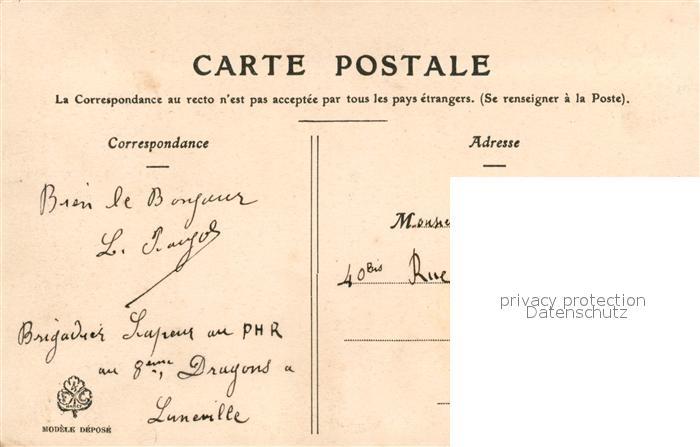 CARTE POSTALE
La Correspondance au recto n'est pas acceptée par tous les pays étrangers. (Se renseigner à la Poste).
Correspondance
Adresse
Bien le Bonjour
L.
Brigadier Sapeur au PHR
au 8ème, Dragons a
Luneville
Monsie
40 Bis Rue
privacy protection
Datenschutz
MODÈLE DÉPOSÉ